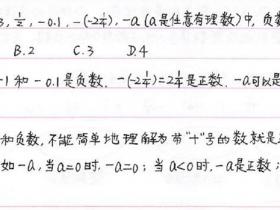 3, 1/2, -0.1, -(-2 1/4), -a (a是任意有理数) 中, 负数
B. 2 C. 3 D. 4
-1和-0.1是负数, -(-2 1/4)=2 1/4是正数, -a可以是
和负数, 不能简单地理解为带"+"号的数就是
如-a, 当a=0时, -a=0; 当a<0时, -a是正数;